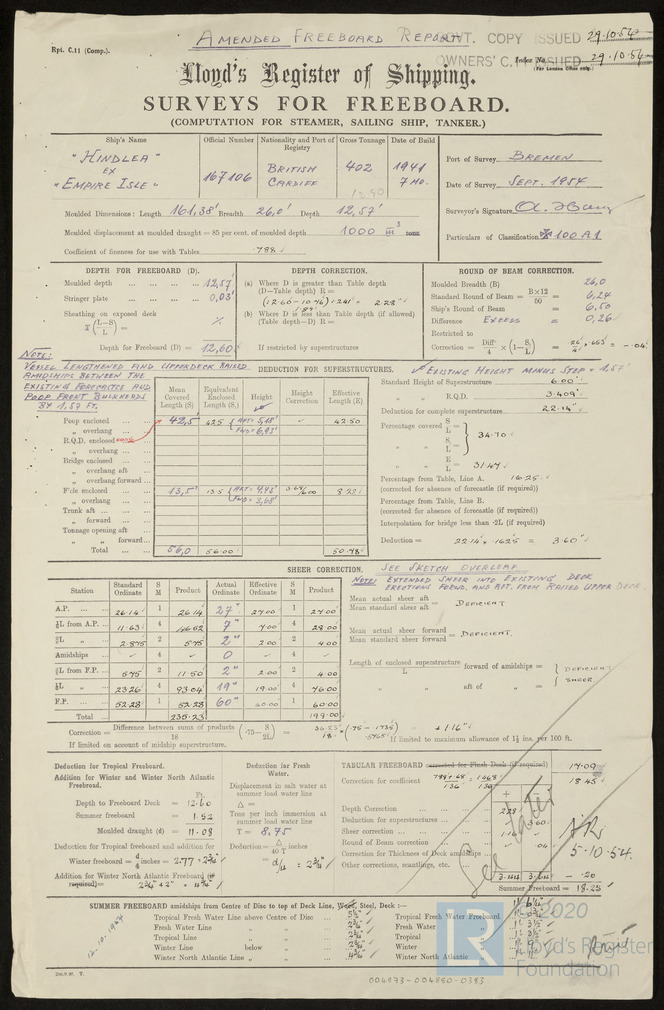 AMENDED FREEBOARD REPORT. COPY ISSUED 29.10.54
Rpt. C.11 (Comp.).
OWNERS' ISSUED 29.10.54
Index No.
(For London Office only.)
Lloyd's Register of Shipping.
SURVEYS FOR FREEBOARD.
(COMPUTATION FOR STEAMER, SAILING SHIP, TANKER.)
Ship's Name Official Number Nationality and Port of Registry Gross Tonnage Date of Build
"HINDLEA" EX "EMPIRE ISLE" 167106 BRITISH CARDIFF 402 1941 7 MO.
Port of Survey BREMEN
Date of Survey SEPT. 1954
Surveyor's Signature
Particulars of Classification 100 A1
Moulded Dimensions: Length 161,38' Breadth 26,0' Depth 12,57'
Moulded displacement at moulded draught = 85 per cent. of moulded depth 1000 tons
Coefficient of fineness for use with Tables .788
DEPTH FOR FREEBOARD (D).
Moulded depth 12,57'
Stringer plate 0,03'
Sheathing on exposed deck
T (L-S/L) =
Depth for Freeboard (D) = 12,60'
DEPTH CORRECTION.
(a) Where D is greater than Table depth
(D—Table depth) R =
(12.60 - 10.76) 1.241 = 2.28"
(b) Where D is less than Table depth (if allowed)
(Table depth—D) R =
If restricted by superstructures
ROUND OF BEAM CORRECTION.
Moulded Breadth (B) 26,0
Standard Round of Beam = B×12/50 = 6,24
Ship's Round of Beam = 6,50
Difference EXCESS = 0,26
Restricted to
Correction = Diff/4 × (1-S/L) = .26/4 × .653 = -.04
NOTE:
VESSEL LENGTHENED AND UPPERDECK RAISED
AMIDSHIPS BETWEEN THE
EXISTING FORECASTLE AND
POOP FRONT BULKHEADS
BY 1,57 FT.
DEDUCTION FOR SUPERSTRUCTURES.
Mean Covered Length (S) Equivalent Enclosed Length (S₁) Height Height Correction Effective Length (E)
Poop enclosed 42,5' 42.5 AFT= 5,18' FWD= 6,93' 42.50
„ overhang
R.Q.D. enclosed
„ overhang
Bridge enclosed
„ overhang aft
„ overhang forward
F'cle enclosed 13,5' 13.5 8.28
„ overhang
Trunk aft
„ forward
Tonnage opening aft
„ „ forward
Total 56,0 56.00 50.78
EXISTING HEIGHT MINUS STEP = 1,57'
Standard Height of Superstructure 6.00'
„ „ R.Q.D. 3.409'
Deduction for complete superstructure 22.14"
Percentage covered S/L =
„ „ S₁/L = 34.70
„ „ E/L = 31.47
Percentage from Table, Line A. 16.25
(corrected for absence of forecastle (if required))
Percentage from Table, Line B.
(corrected for absence of forecastle (if required))
Interpolation for bridge less than ·2L (if required)
Deduction = 22.14 × .1625 = 3.60"
SHEER CORRECTION.
Station Standard Ordinate S M Product Actual Ordinate Effective Ordinate S M Product
A.P. 26.14 1 26.14 27" 27.00 1 27.00
⅙L from A.P. 11.63 4 46.52 7" 7.00 4 28.00
⅓L „ 2.875 2 5.75 2" 2.00 2 4.00
Amidships 4 0 4
⅓L from F.P. 5.75 2 11.50 2" 2.00 2 4.00
⅙L „ 23.26 4 93.04 19" 19.00 4 76.00
F.P. 52.28 1 52.28 60" 60.00 1 60.00
Total 235.23 199.00
SEE SKETCH OVERLEAF
NOTE: EXTENDED SHEER INTO EXISTING DECK
ERECTIONS FORWD. AND AFT. FROM RAISED UPPER DECK.
Mean actual sheer aft
Mean standard sheer aft = DEFICIENT
Mean actual sheer forward
Mean standard sheer forward = DEFICIENT.
Length of enclosed superstructure/L forward of amidships = DEFICIENT
„ „ aft of „ = SHEER
Correction = Difference between sums of products/18 (·75-S/2L) = 36.23/18 (.75 - .1735) .5765 = +1.16"
If limited on account of midship superstructure. If limited to maximum allowance of 1½ ins. per 100 ft.
Deduction for Tropical Freeboard.
Addition for Winter and Winter North Atlantic
Freeboard.
Ft.
Depth to Freeboard Deck = 12.60
Summer freeboard = 1.52
Moulded draught (d) = 11.08
Deduction for Tropical freeboard and addition for
Winter freeboard = d/4 inches = 2.77 = 2¾"
Addition for Winter North Atlantic Freeboard (if
required) = 2¾" + 2" = 4¾"
Deduction for Fresh
Water.
Displacement in salt water at
summer load water line
Δ =
Tons per inch immersion at
summer load water line
T = 8.75
Deduction = Δ/40 T inches
= d/4 = 2¾"
TABULAR FREEBOARD corrected for Flush Deck (if required) 17.09
Correction for coefficient .788+.68/1.36 = 1.468/1.36 18.45
+ -
Depth Correction 2.28
Deduction for superstructures 3.60
Sheer correction 1.16
Round of Beam correction .04
Correction for Thickness of Deck amidships
Other corrections, scantlings, etc.
3.44 3.64 - .20
Summer Freeboard = 18.25
See later
5-10.54.
SUMMER FREEBOARD amidships from Centre of Disc to top of Deck Line, Wood, Steel, Deck :—
Tropical Fresh Water Line above Centre of Disc 5½" Tropical Fresh Water Freeboard
Fresh Water Line „ „ 2¾" Fresh Water „
Tropical Line „ „ 2¾" Tropical „
Winter Line below „ 2¾" Winter „
Winter North Atlantic Line „ „ 4¾" Winter North Atlantic „
12.10.1954
©2020
LR
Lloyd's Register
Foundation
004873-004880-0383